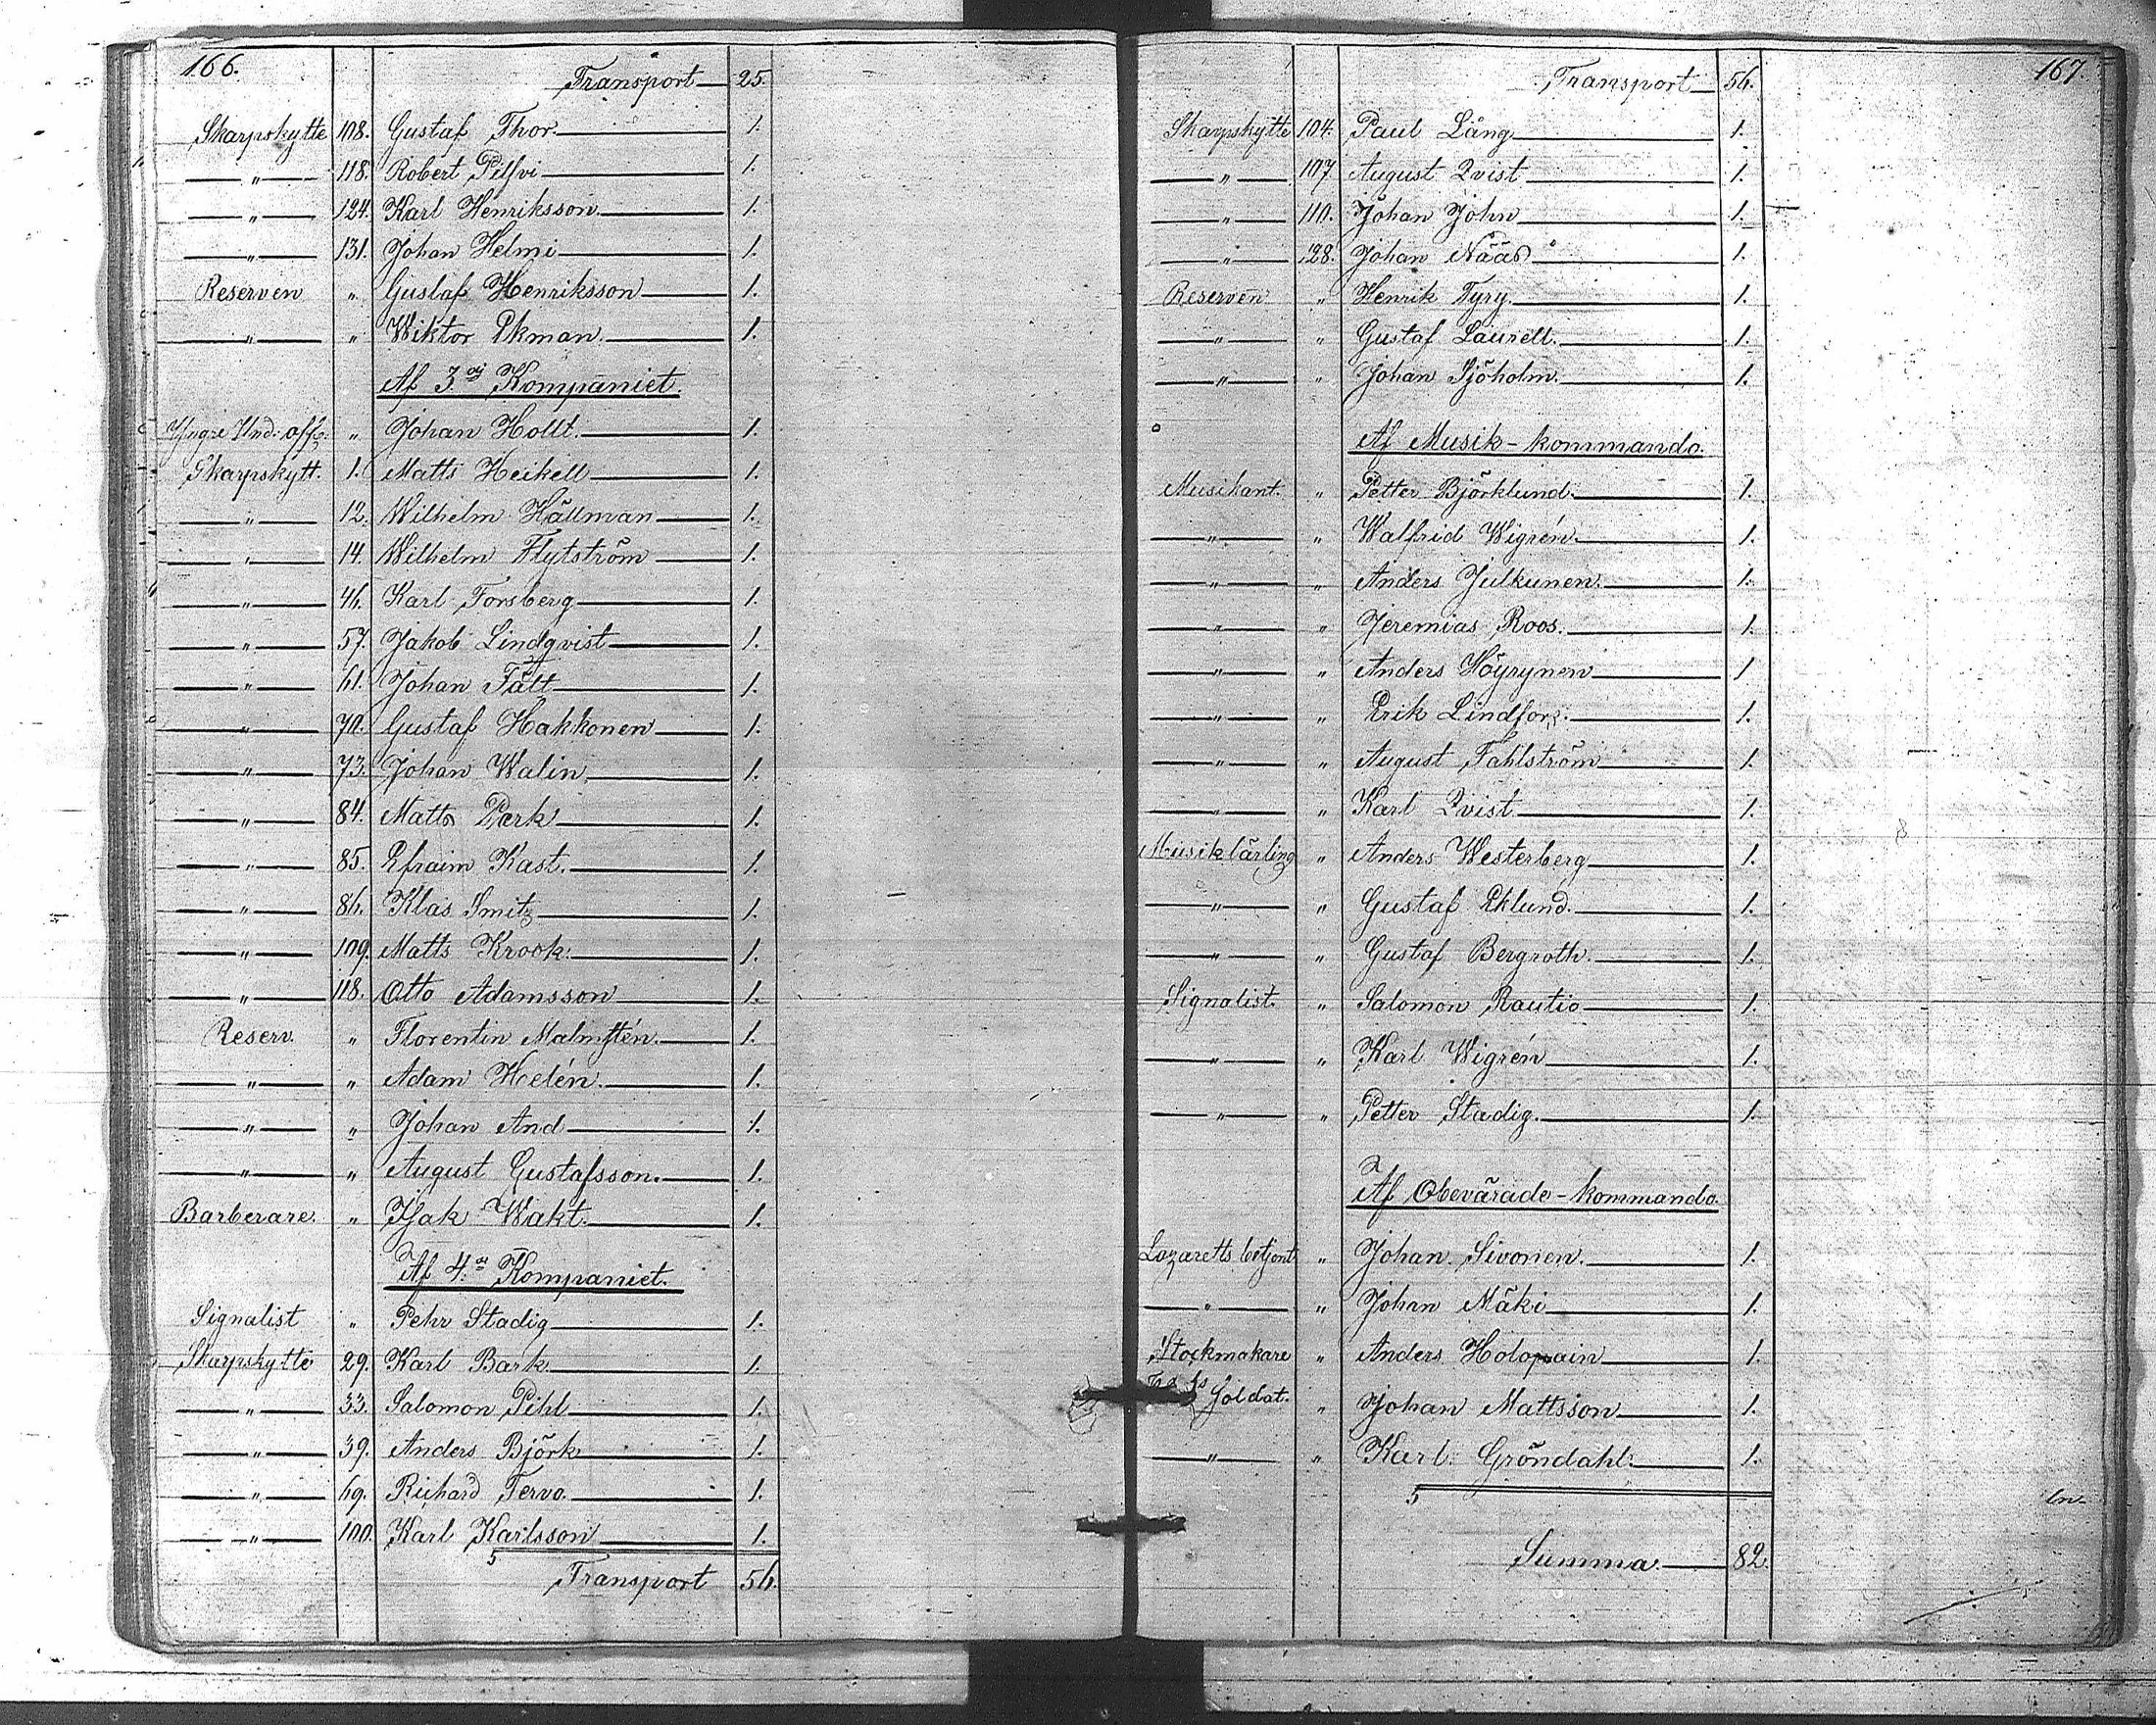 166.
Transport 25.
Skarpskytte 108. Gustaf Thor. 1.
" 118. Robert Pilfvi 1.
" 124. Karl Henriksson. 1.
" 131. Johan Helmi 1.
Reserven " Gustaf Henriksson 1.
" " Wiktor Ekman. 1.
Af 3:dj Kompaniet.
Yngre Und: off: " Johan Hollt. 1.
Skarpskytt. 1. Matts Heikell 1.
" 12. Wilhelm Hällman 1.
" 14. Wilhelm Flytström 1.
" 46. Karl Forsberg 1.
" 57. Jakob Lindqvist 1.
" 61. Johan Fält 1.
" 70. Gustaf Hakkonen 1.
" 73. Johan Walin 1.
" 84. Matts Perk 1.
" 85. Efraim Kast. 1.
" 86. Klas Smitz 1.
" 109. Matts Krook. 1.
" 118. Otto Adamsson 1.
Reserv. " Florentin Malmstén. 1.
" " Adam Helén. 1.
" " Johan And 1.
" " August Gustafsson. 1.
Barberare. " Isak Wakt. 1.
Af 4:de Kompaniet.
Signalist " Pehr Stadig 1.
Skarpskytte 29. Karl Bark 1.
" 33. Salomon Pihl 1.
" 39. Anders Björk 1.
" 69. Richard Tervo. 1.
" 100. Karl Karlsson 1.
5
Transport 56.
167.
Transport 56.
Skarpskytte 104. Paul Lång 1.
" 107 August Qvist 1.
" 110. Johan John 1.
" 128. Johan Nääs 1.
Reserven " Henrik Tyry. 1.
" " Gustaf Laurell. 1.
" " Johan Sjöholm. 1.
Af Musik-kommando.
Musikant. " Petter Björklund. 1.
" " Walfrid Wigrén. 1.
" " Anders Julkunen. 1.
" " Jeremias Roos. 1.
" " Anders Höyrynen 1
" " Erik Lindfors. 1.
" " August Fahlström 1.
" " Karl Qvist 1.
Musiklärling " Anders Westerberg 1.
" " Gustaf Eklund. 1.
" " Gustaf Bergroth. 1.
Signalist. " Salomon Rautio 1.
" " Karl Wigrén 1.
" " Petter Stadig. 1.
Af Obevärade-kommando.
Lazaretts betjent " Johan Sivonen. 1.
" " Johan Mäki 1.
Stockmakare " Anders Holopain 1.
Soldat. " Johan Mattsson 1.
" " Karl Gröndahl. 1.
5
Summa. 82.